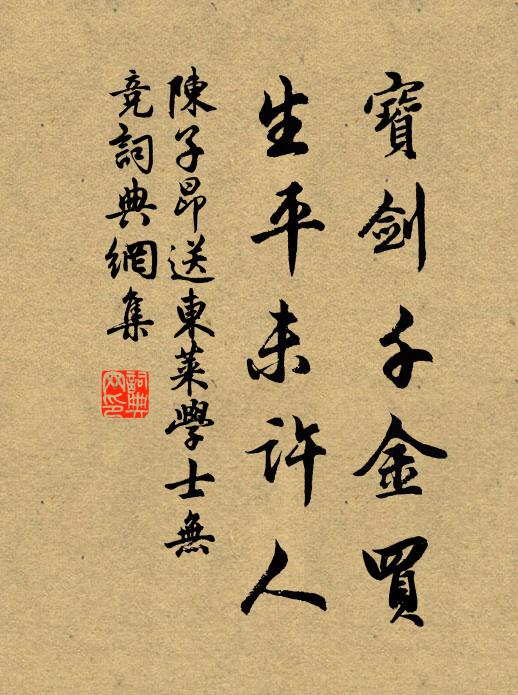 寶劍千金買
生平未許人
陳子昂送東萊學士無
競詞典網集
詞典網印